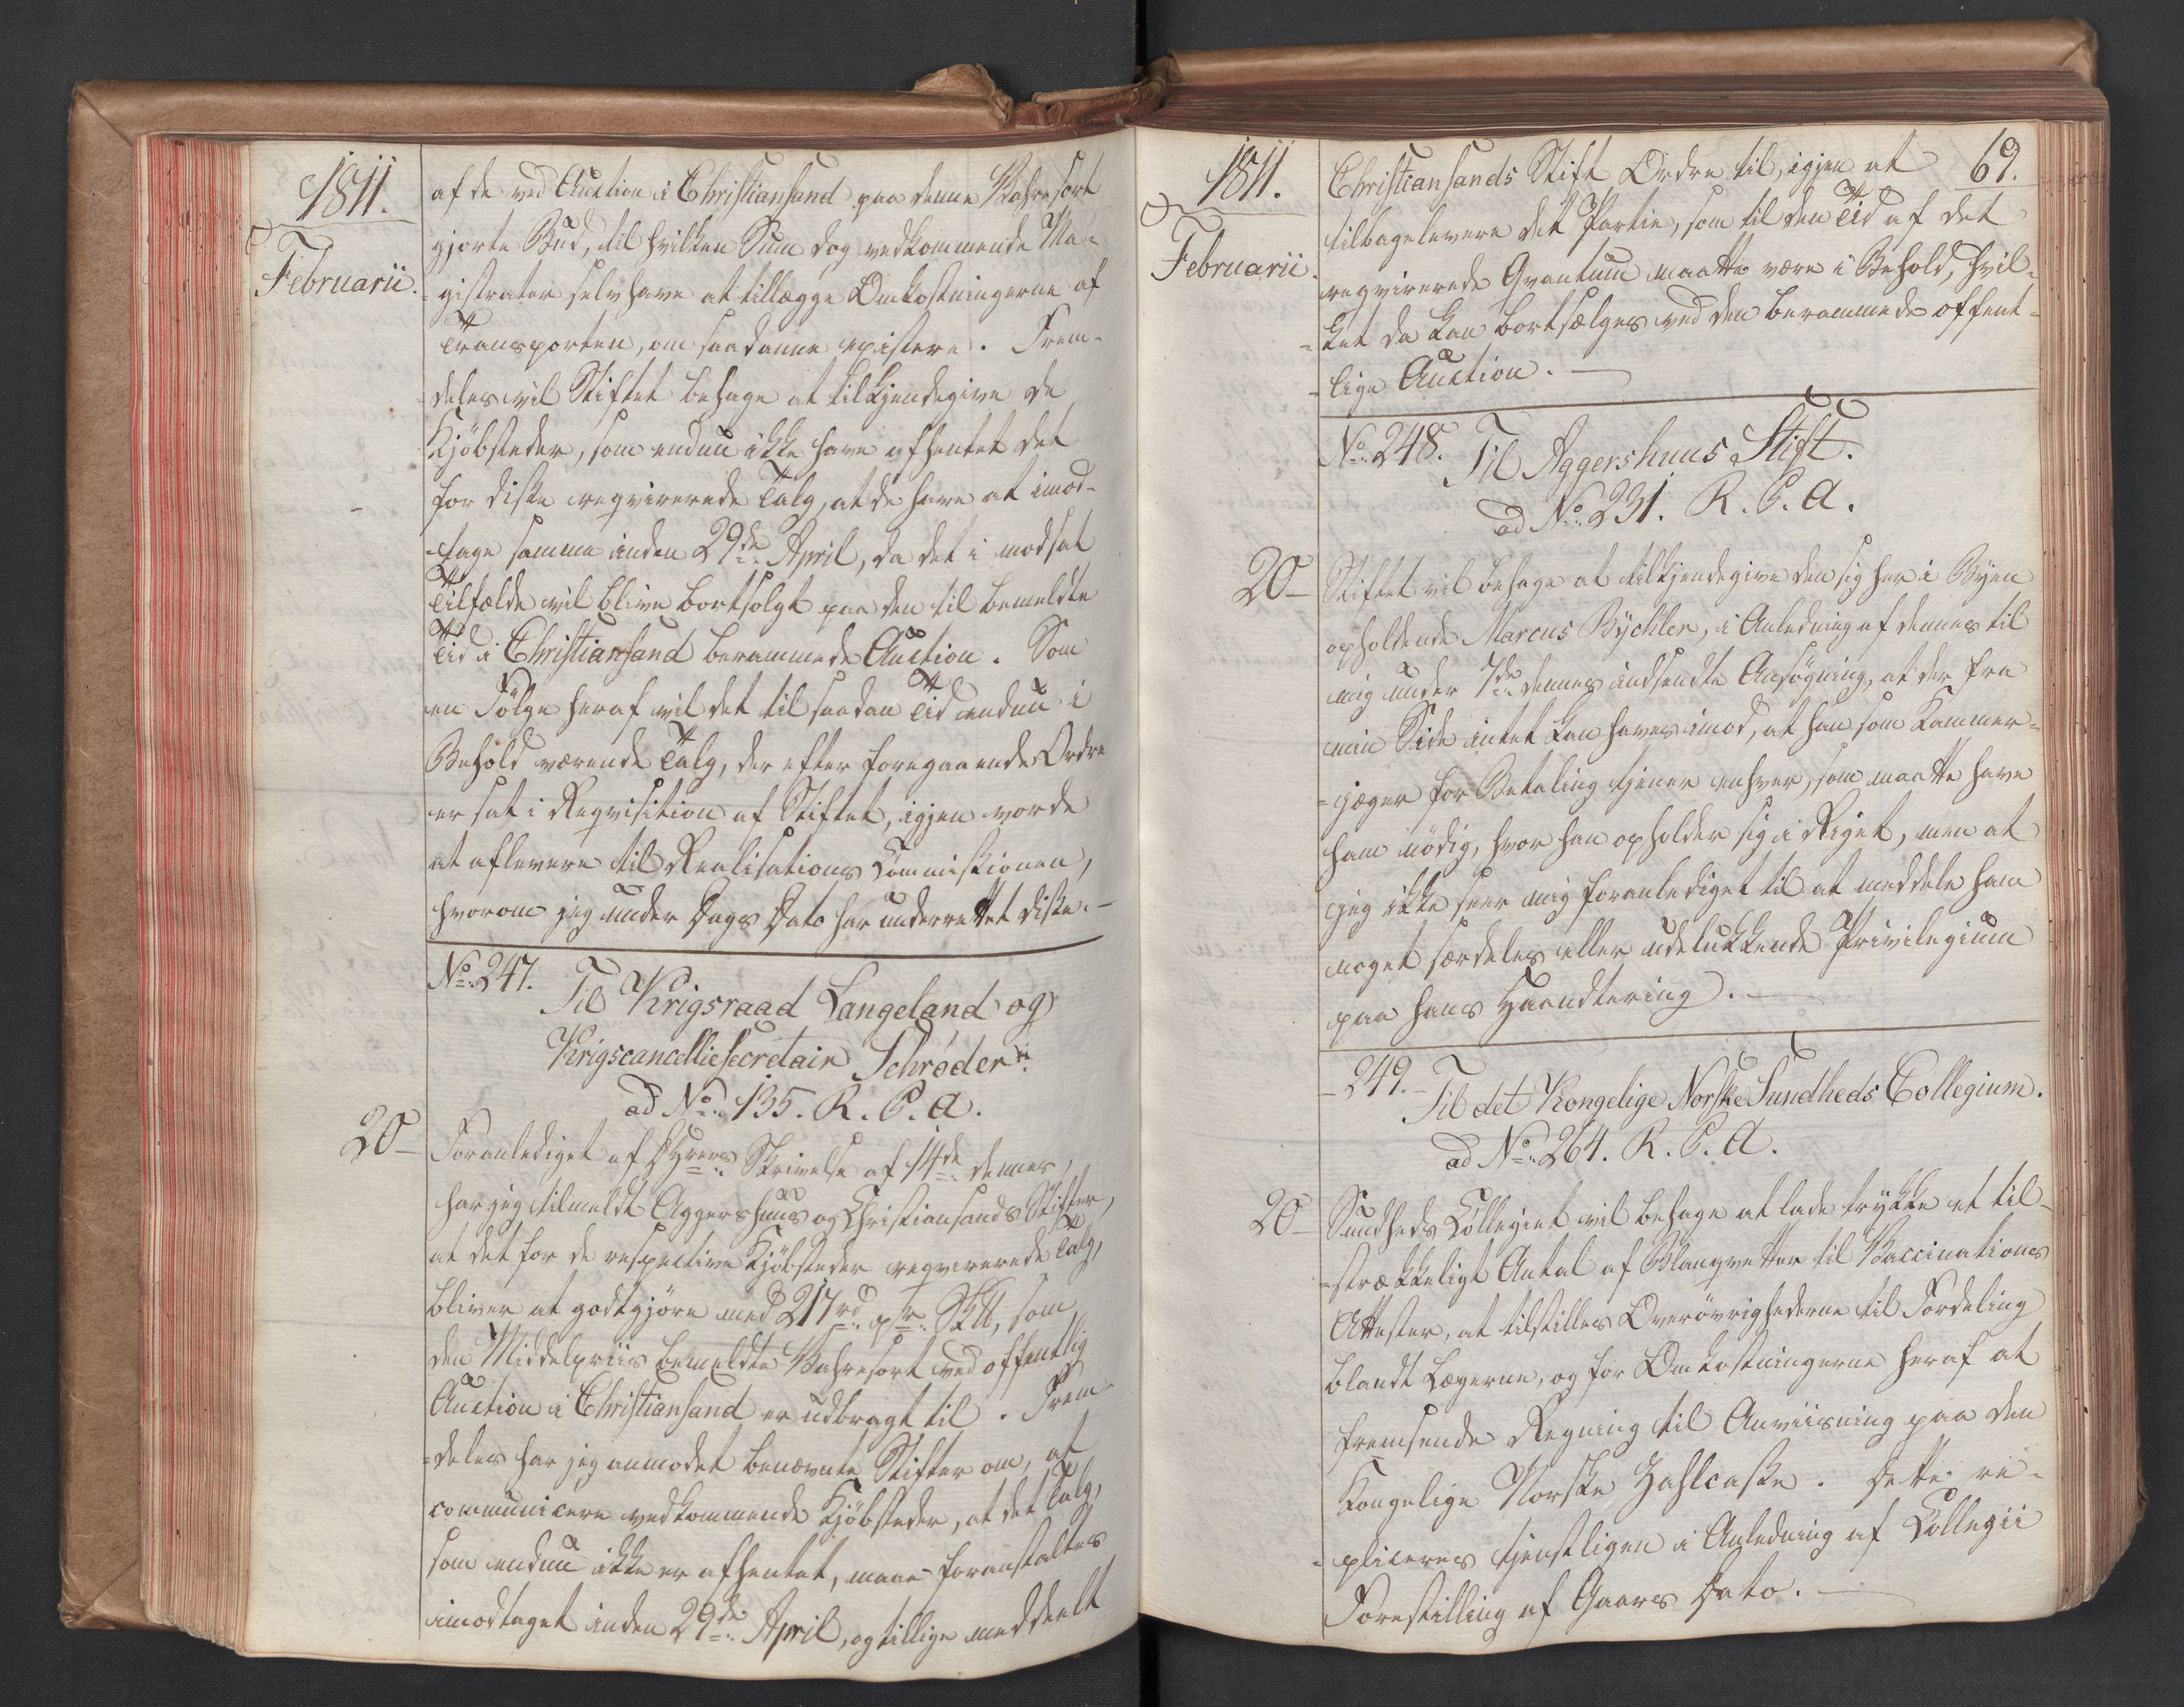 1811.
Februarii.
af de ved Auction i Christiansand paa denne Vahresort
gjorte Bud, til hvilken Sum dog vedkommende Ma-
gistrater selv have at tillægge Omkostningerne af
Transporten, om saadanne existere. Frem-
deles vil Stiftet behage at tilkjendegive de
Kjöbsteder, som endnu ikke have afhentet det
for diske reqvirerede Talg, at de have at imod-
tage samme inden 29de April, da det i modsat
Tilfælde vil blive bortsolgt paa den til bemeldte
Tid i Christiansand berammede Auction. Som
en Fölge heraf vil det til saadan Tid endnu i
Behold værende Talg, der efter foregaaende Ordre
er sat i Reqvisition af Stiftet, igjen vorde
at aflevere til Realisations Commissionen,
hvorom jeg under Dags Dato har underrettet diske. -
No. 247.
Til Krigsraad Langeland og
Krigscancelliesecretair Schrøder.
ad No. 135. R. P. A.
20- Foranlediget af DHrrers Skrivelse af 14de dennes,
har jeg tilmeldt Aggershuus og Christiansands Stifter,
at det for de respective Kjöbsteder reqvirerede Talg,
bliver at godtgjöre med 217 rd. pr. Sk℔, som
den Middelpriis bemeldte Vahresort ved offentlig
Auction i Christiansand er udbragt til. Frem-
=deles har jeg anmodet benævnte Stifter om, at
communicere vedkommende Kjöbsteder, at det Talg,
som endnu ikke er afhentet, maae foranstaltes
imodtaget inden 29de April, og tillige meddeelt
1811.
Februarii.
69.
Christiansands Stift Ordre til, igjen at
tilbagelevere det Partie, som til den Tid af det
reqvirerede Qvantum maatte være i Behold, hvil-
=ket da kan bortsælges ved den berammede offent-
=lige Auction. -
No. 248. Til Aggershuus Stift.
ad No. 231. R. P. A.
20- Stiftet vil behage at tilkjendegive den sig her i Byen
opholdende Marcus Bÿchler, i Anledning af dennes til
mig under 7de dennes indsendte Ansögning, at der fra
min Side intet kan haves imod, at han som Kammer-
=jæger for Betaling tjener enhver, som maatte have
ham nödig, hvor han opholder sig i Riget, men at
jeg ikke seer mig foranlediget til at meddele ham
noget særdeles eller udelukkende Privilegium
paa hans Haandtering. -
- 249. - Til det Kongelige Norske Sundheds Collegium.
ad No. 264. R. P. A.
20- Sundheds Collegiet vil behage at lade trykke et til-
=strækkeligt Antal af Blanqvetter til Vaccinations
Attester, at tilstilles Overövrighederne til Fordeling
blandt Lægerne, og for Omkostningerne heraf at
fremsende Regning til Anviisning paa den
Kongelige Norske Zahlcasse. Dette re-
=pliceres tjenstligen i Anledning af Collegii
Forestilling af Gaars Dato. -